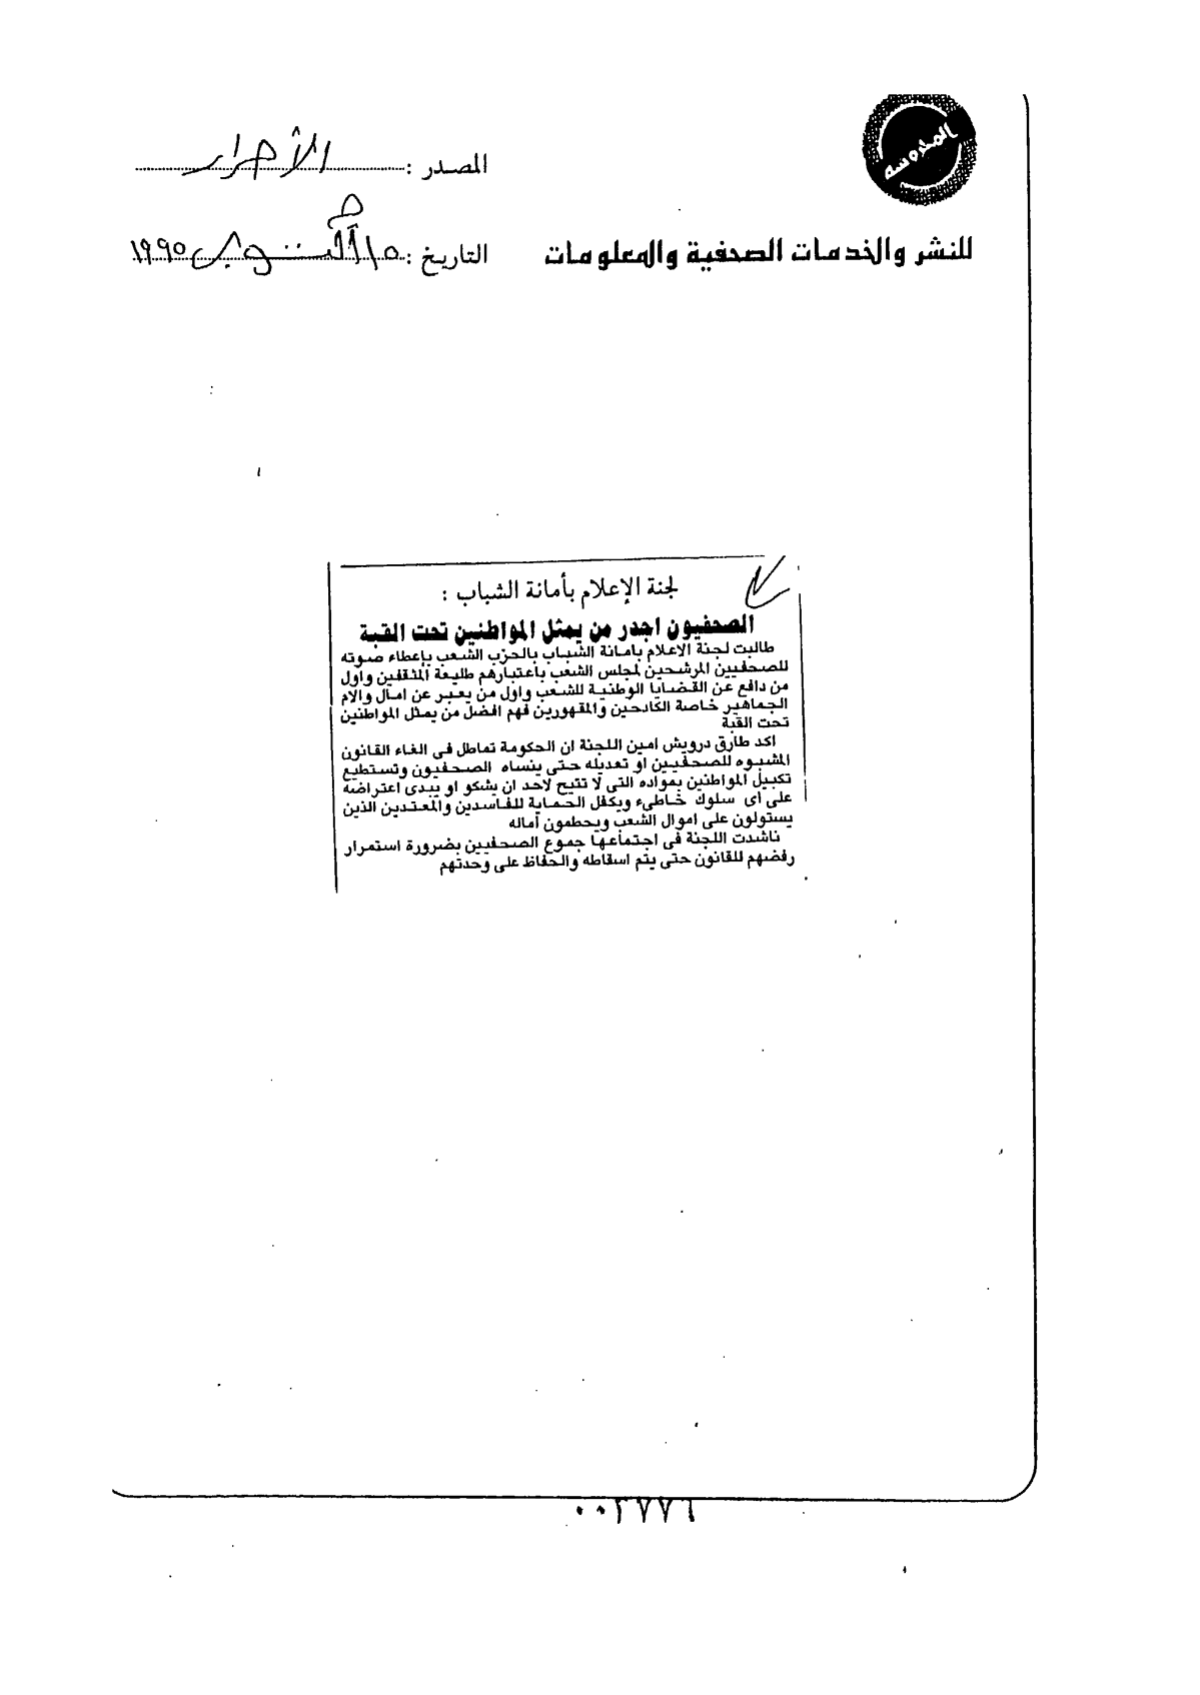 المحروسة
المصدر : الأحرار
للنشر والخدمات الصحفية والمعلومات
التاريخ : ١٥ أكتوبر ١٩٩٥
لجنة الإعلام بأمانة الشباب :
الصحفيون اجدر من يمثل المواطنين تحت القبة
طالبت لجنة الاعلام بامانة الشباب بالحزب الشعب بإعطاء صوته
للصحفيين المرشحين لمجلس الشعب باعتبارهم طليعة المثقفين واول
من دافع عن القضايا الوطنية للشعب واول من يعبر عن امال والام
الجماهير خاصة الكادحين والمقهورين فهم افضل من يمثل المواطنين
تحت القبة
اكد طارق درويش امين اللجنة ان الحكومة تماطل فى الغاء القانون
المشبوه للصحفيين او تعديله حتى ينساه الصحفيون وتستطيع
تكبيل المواطنين بمواده التى لا تتيح لاحد ان يشكو او يبدى اعتراضه
على اى سلوك خاطىء ويكفل الحماية للفاسدين والمعتدين الذين
يستولون على اموال الشعب ويحطمون آماله
ناشدت اللجنة فى اجتماعها جموع الصحفيين بضرورة استمرار
رفضهم للقانون حتى يتم اسقاطه والحفاظ على وحدتهم
٠٠٢٧٧٦